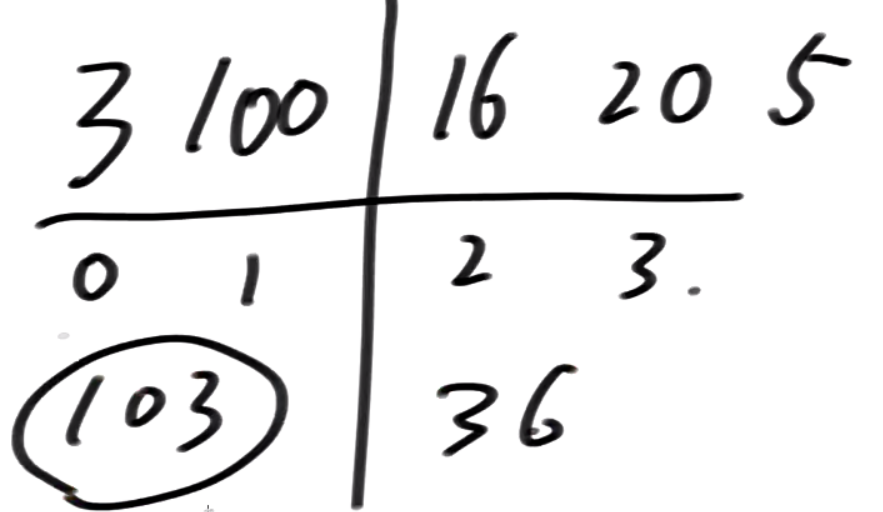 3 100 16 20 5
0 1 2 3.
103 36